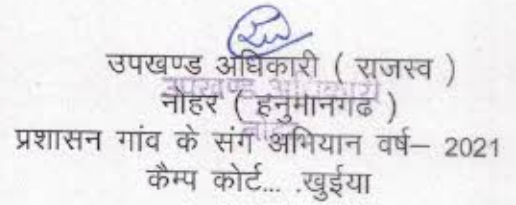 उपखण्ड अधिकारी ( राजस्व )
नोहर ( हनुमानगढ )
प्रशासन गांव के संग अभियान वर्ष– 2021
कैम्प कोर्ट... .खुईया